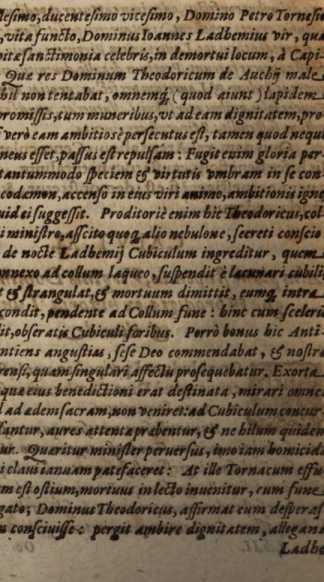 llesimo, ducentesimo vicesimo, Domino Petro Tornesio
, vita functo, Dominus Ioannes Ladhemius vir, qua
pitæ sanctimonia celebris, in demortui locum, à Capi-
. Que res Dominum Theodoricum de Auchÿ male
hil non tentabat, omnemq; (quod aiunt) lapidem
promissis, tum muneribus, vt ad eam dignitatem, pro-
vero eam ambitiosè persecutus est, tamen quod nequ
neus esset, passus est repulsam: Fugit enim gloria per
tantummodo speciem & virtutis vmbram in se con-
codæmon, accenso in eius viri animo, ambitionis igne
uid ei suggessit. Proditoriè enim hic Theodoricus, col-
i ministro, asscito quoq; alio nebulone, secreti conscio
de nocte Ladhemij Cubiculum ingreditur, quem
nnexo ad collum laqueo, suspendit è lacunari cubilis
t & strangulat, & mortuum dimittit, eumq; intra
condit, pendente ad Collum fune: hinc cum sceleris
dit, obseratis Cubiculi foribus. Porrò bonus hic Anti-
ntiens angustias, sese Deo commendabat, & nostræ
rensi, quam singulari affectu prosequebatur. Exorta
quæ eius benedictioni erat destinata, mirari omnes
d ad ædem sacram, non veniret: ad Cubiculum concur-
santur, aures attentæ præbentur, & ne hilum quidem
ur. Quæritur minister peruersus, imo iam homicida
i clauis ianuam patefaceret: At ille Tornacum effu
m est ostium, mortuus in lecto inuenitur, cum fune
gato; Dominus Theodoricus, affirmat eum desperas
conscivisse: pergit ambire dignitatem, allegans
Ladhe